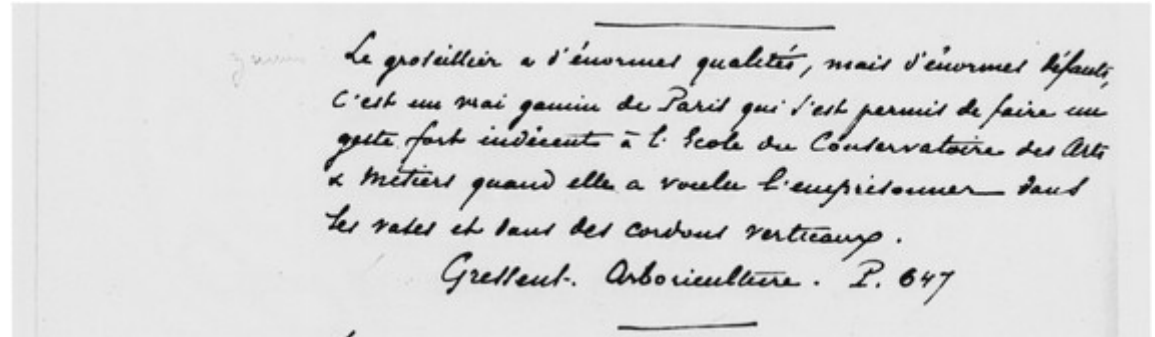 Le groseillier a d'énormes qualités, mais d'énormes défauts,
C'est un vrai gamin de Paris qui s'est permis de faire un
geste fort indécent à l'Ecole du Conservatoire des Arts
& Métiers quand elle a voulu l'emprisonner dans
ses vases et dans des cordons verticaux.
Gressent. Arboriculture. P. 647